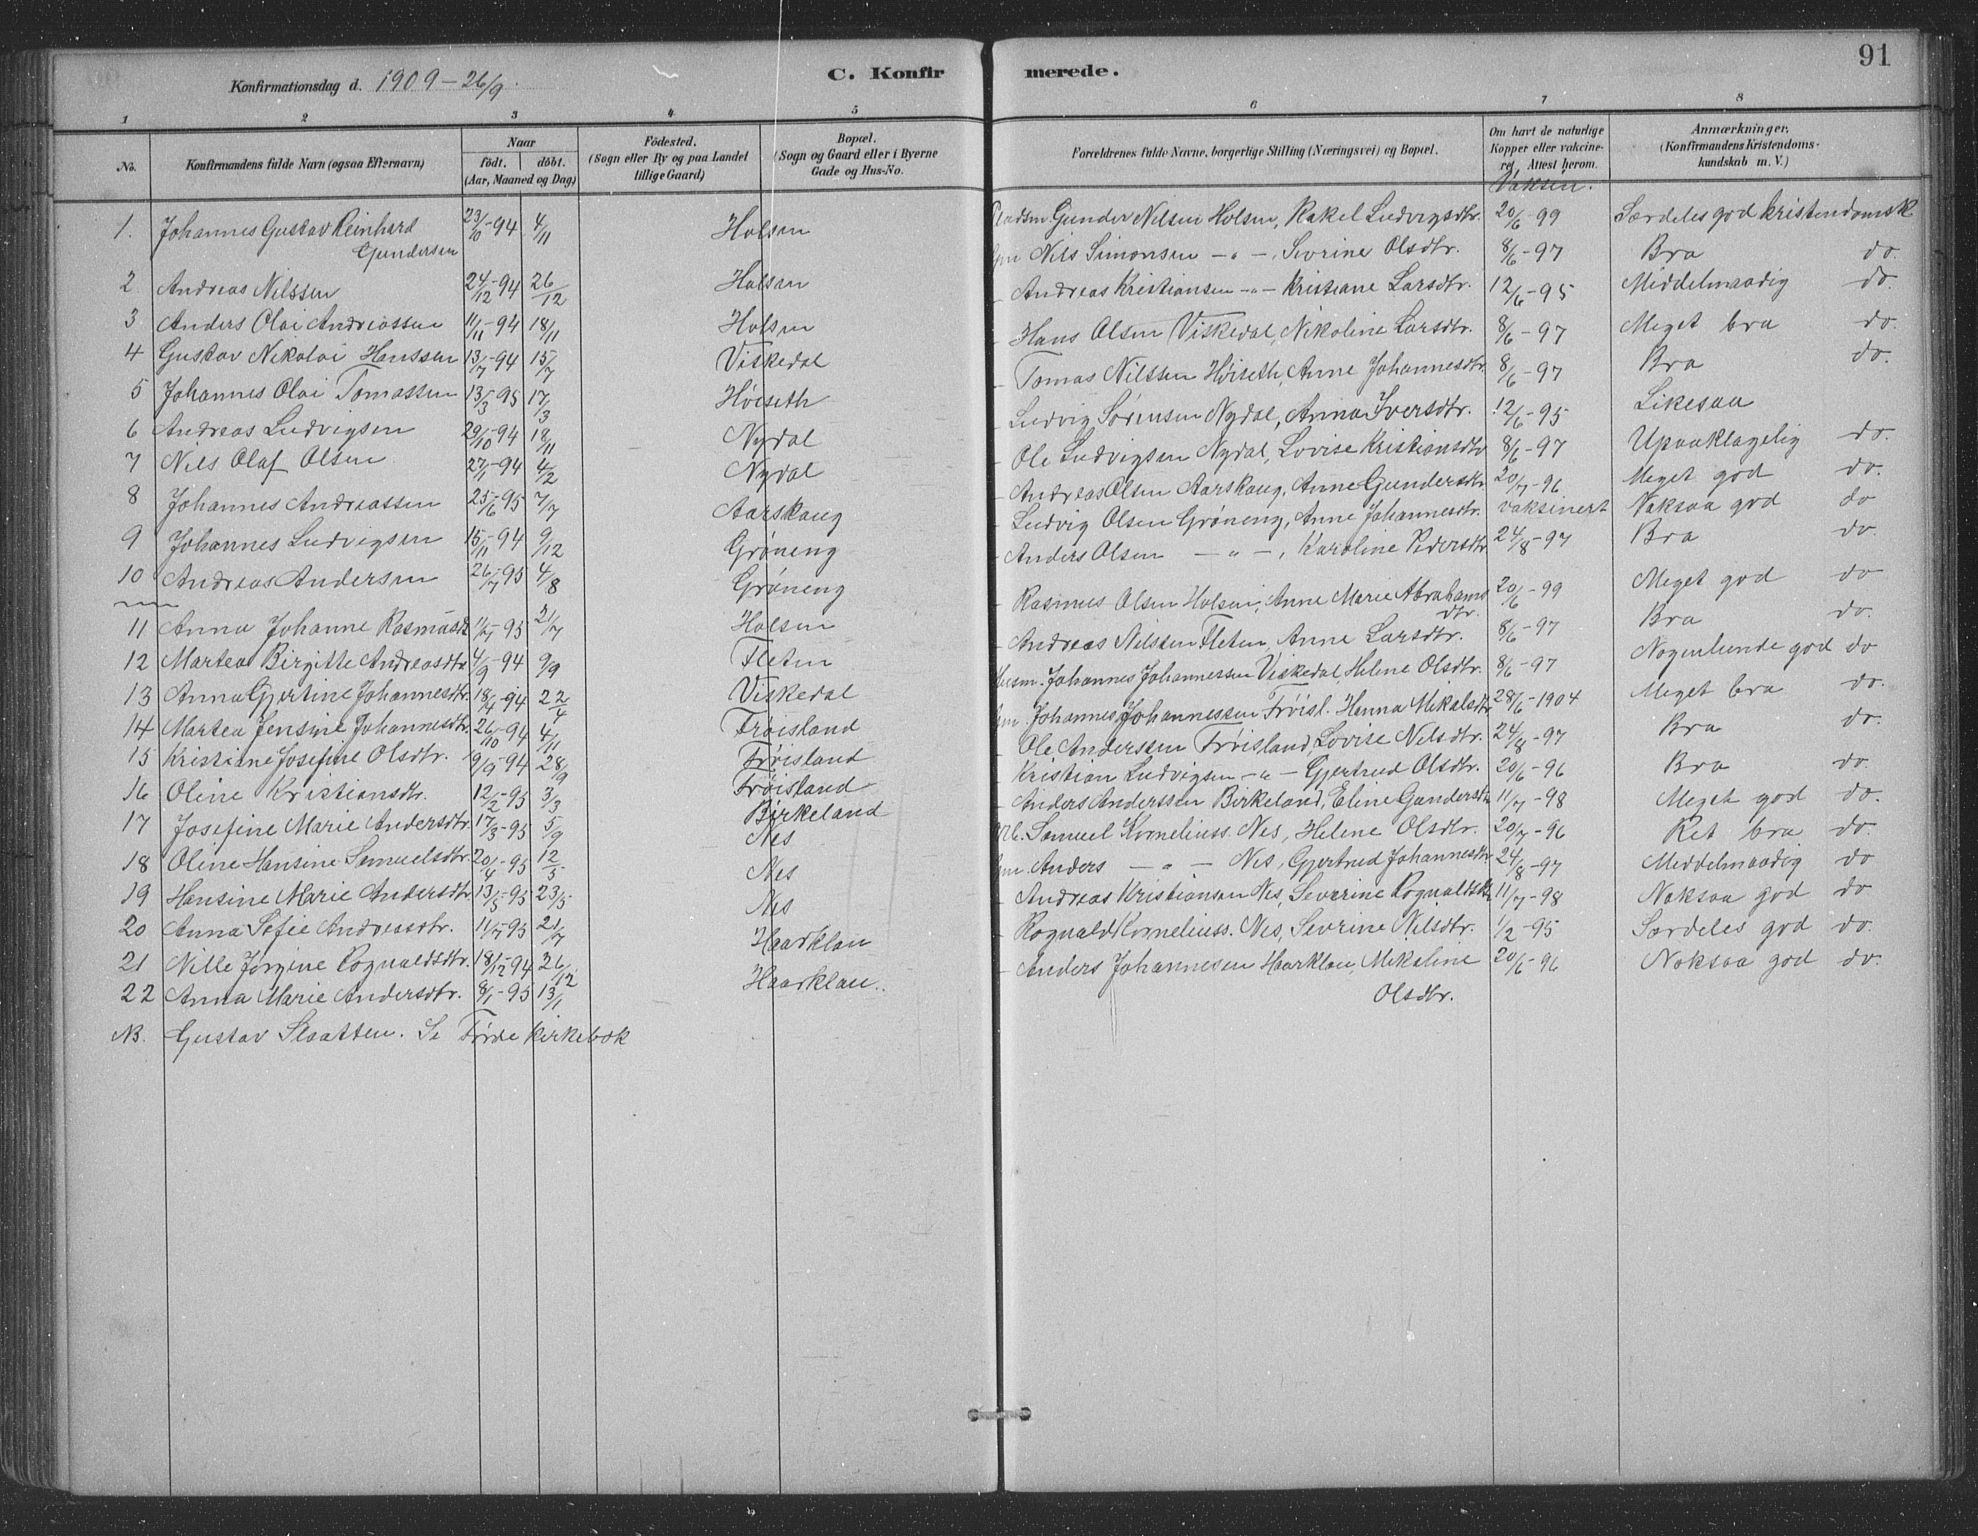 91
C. Konfirmerede.
Konfirmationsdag d. 1909 - 26/9
1 2 3 4 5 6 7 8
No. Konfirmandens fulde Navn (ogsaa Efternavn) Naar födt. döbt. (Aar, Maaned og Dag) Födested. (Sogn eller By og paa Landet tillige Gaard) Bopæl. (Sogn og Gaard eller i Byerne Gade og Hus-No. Forældrenes fulde Navne, borgerlige Stilling (Næringsvei) og Bopæl. Om havt de naturlige Kopper eller vakcineret, Attest herom. Anmærkninger. (Konfirmandens Kristendomskundskab m. V.)
Vaksin.
1. Johannes Gustav Reinhard Gundersen 23/10-94 4/11 Holsen Gunder Nilsen Holsen, Rakel Ludvigsdtr. 20/6-99 Særdeles god kristendomsk
2 Andreas Nilssen 24/12-94 26/12 Holsen Nils Simonsen -"-, Sevrine Olsdtr. 8/6-97 Bra do.
3 Anders Olai Andreassen 11/11-94 18/11 Holsen - Andreas Kristiansen -"- Kristiane Larsdtr. 12/6-95 Middelmaadig do.
4 Gustav Nikolai Hanssen 13/7-94 15/7 Viskedal - Hans Olsen Viskedal, Nikoline Larsdtr. 8/6-97 Meget bra do.
5 Johannes Olai Tomassen 13/3-95 17/3 Høiseth - Tomas Nilssen Høiseth, Anne Johannesdtr. 8/6-97 Bra do.
6 Andreas Ludvigsen 29/10-94 18/11 Nydal - Ludvig Sørensen Nydal, Anna Iversdtr. 12/6-95 Likesaa
7 Nils Olaf Olsen 27/1-94 4/2 Nydal - Ole Ludvigsen Nydal, Lovise Kristiansdtr 8/6-97 Upaaklagelig do.
8 Johannes Andreassen 25/6-95 7/7 Aarskaug - Andreas Olsen Aarskaug, Anne Gundersdtr 20/7-96 Meget god do.
9 Johannes Ludvigsen 15/11-94 9/12 Grøneng - Ludvig Olsen Grøneng, Anne Johannesdtr. vaksinert Noksaa god do
10 Andreas Andersen 26/7-95 4/8 Grøneng - Anders Olsen -"-, Karoline Pedersdtr 24/8-97 Bra do.
11 Anna Johanne Rasmusdtr 1/7-95 21/7 Holsen - Rasmus Olsen Holsen, Anne Marie Abrahamsdtr. 20/6-99 Meget god do
12 Martea Birgitte Andreasdtr 4/9-94 9/9 Fleten - Andreas Nilssen Fleten, Anne Larsdtr. 8/6-97 Bra do.
13 Anna Gjertine Johannesdtr. 18/4-94 22/4 Viskedal Husm. Johannes Johannessen Viskedal, Helene Olsdtr. 8/6-97 Nogenlunde god do
14 Martea Jensine Johannesdtr. 26/10-94 4/11 Frøisland Johannes Johannessen Frøisl. Hanna Mikalsdtr 28/6-1904 Meget bra do.
15 Kristiane Josefine Olsdtr. 19/9-94 28/9 Frøisland - Ole Anderssen Frøisland, Lovise Nilsdtr. 24/8-97 Bra do.
16 Oline Kristiansdtr. 12/2-95 3/3 Frøisland - Kristian Ludvigsen -"- Gjertrud Olsdtr. 20/6-96 Bra do.
17 Josefine Marie Andersdtr 17/3-95 5/9 Birkeland - Anders Anderssen Birkeland, Eline Gundersdtr 11/7-98 Meget god do.
18 Oline Hansine Samuelsdtr. 20/4-95 12/5 Nes Samuel Korneliuss. Nes, Helene Olsdtr. 20/7-96 Ret bra do.
19 Hansine Marie Andersdtr 13/5-95 23/5- Nes Anders -"- Nes, Gjertrud Johannesdtr 24/8-97 Middelmaadig do
20 Anna Sofie Andreasdtr. 11/7-95 21/7 Nes - Andreas Kristiansen Nes, Severine Rognaldsdtr 11/7-98 Noksaa god do
21 Nille Jørgine Rognaldsdtr. 18/12-94 26/12 Haarklau - Rognald Korneliuss. Nes, Sevrine Nilsdtr. 1/2-95 Særdeles god do.
22 Anna Marie Andersdtr. 8/1-95 13/1 Haarklau. - Anders Johannesen Haarklau, Mikaline Olsdtr. 20/6-96 Noksaa god do.
NB. Gustav Slaatten. Se Førde kirkebok